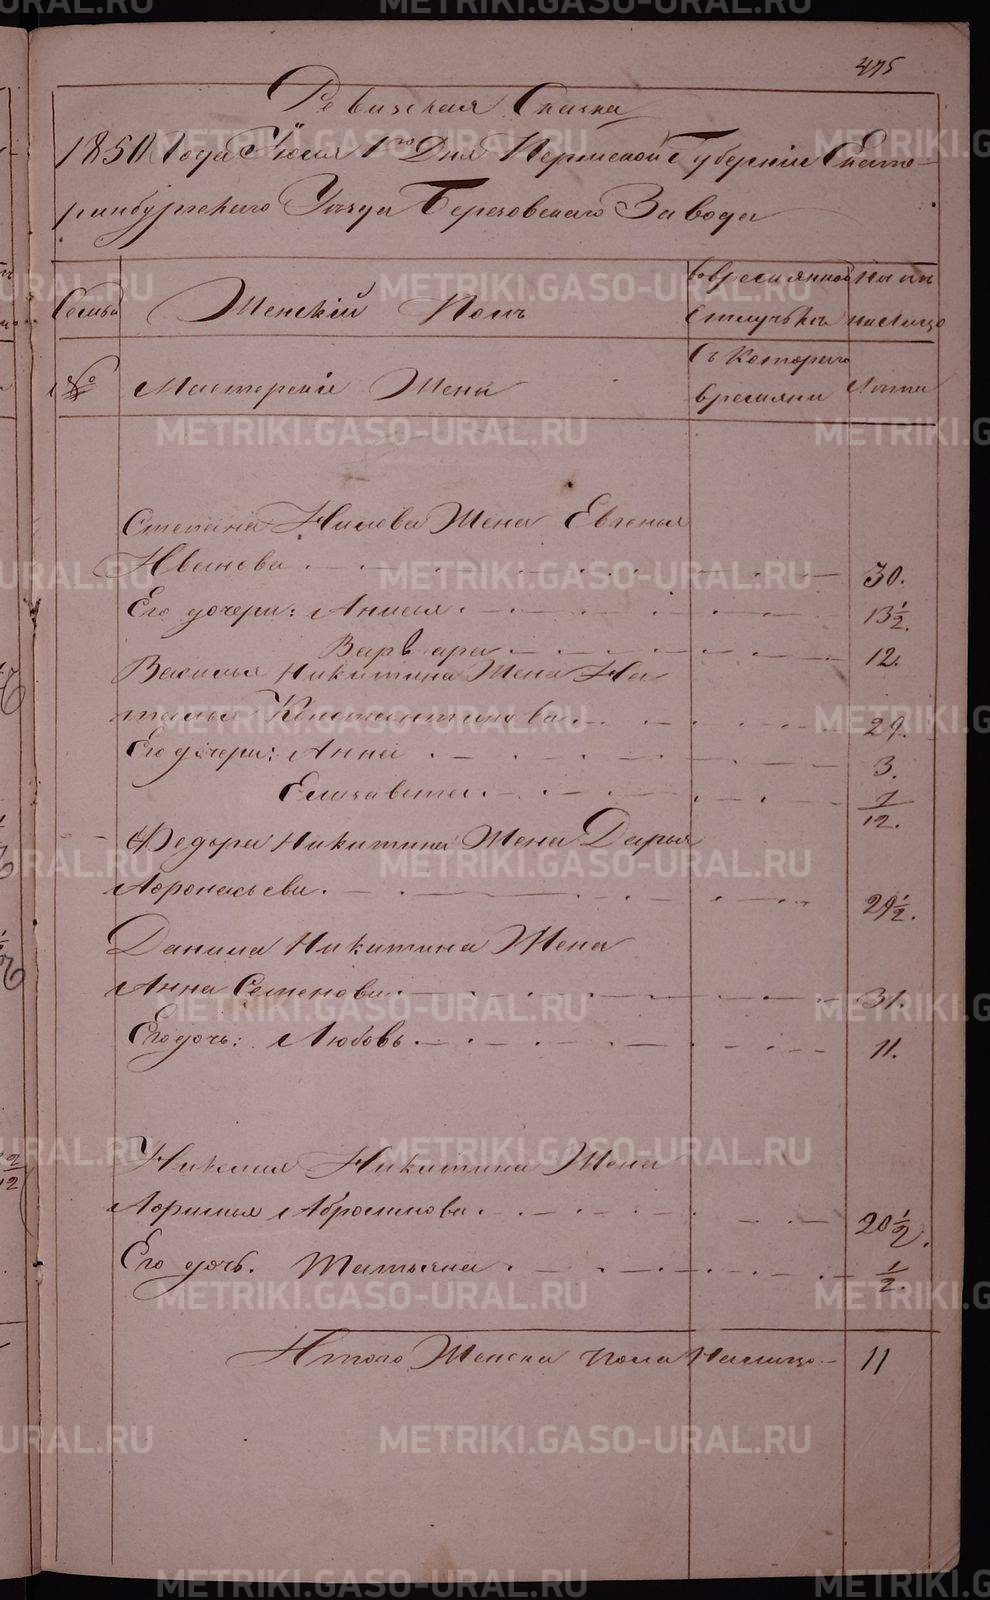 475
Ревизская Сказка
1850 Года Июля 1го Дня Пермской Губернии Екате-
ринбургскаго Уезда Березовскаго Завода
Семьи
Женскій Полъ
Во времянной
отлучкѣ
На ли
№
Мастерскіе Жены
Съ котораго
времяни
Лѣта
Степана Нилова Жена Евгенья
Иванова 30.
Его дочери: Анисья 13 1/2.
Варвара 12.
Василья Никитина Жена На
талья Константинова 29.
Его дочери: Анна 3.
Елизавета 7/12.
Федора Никитина Жена Дарья
Афонасьева 29 1/2.
Данила Никитина Жена
Анна Семенова 31.
Его дочь: Любовь 11.
Никитина Жена
Афимья Абросимова 20 1/2.
Его дочь. Татьяна 1/2.
Итого Женска пола Налицо 11
METRIKI.GASO-URAL.RU